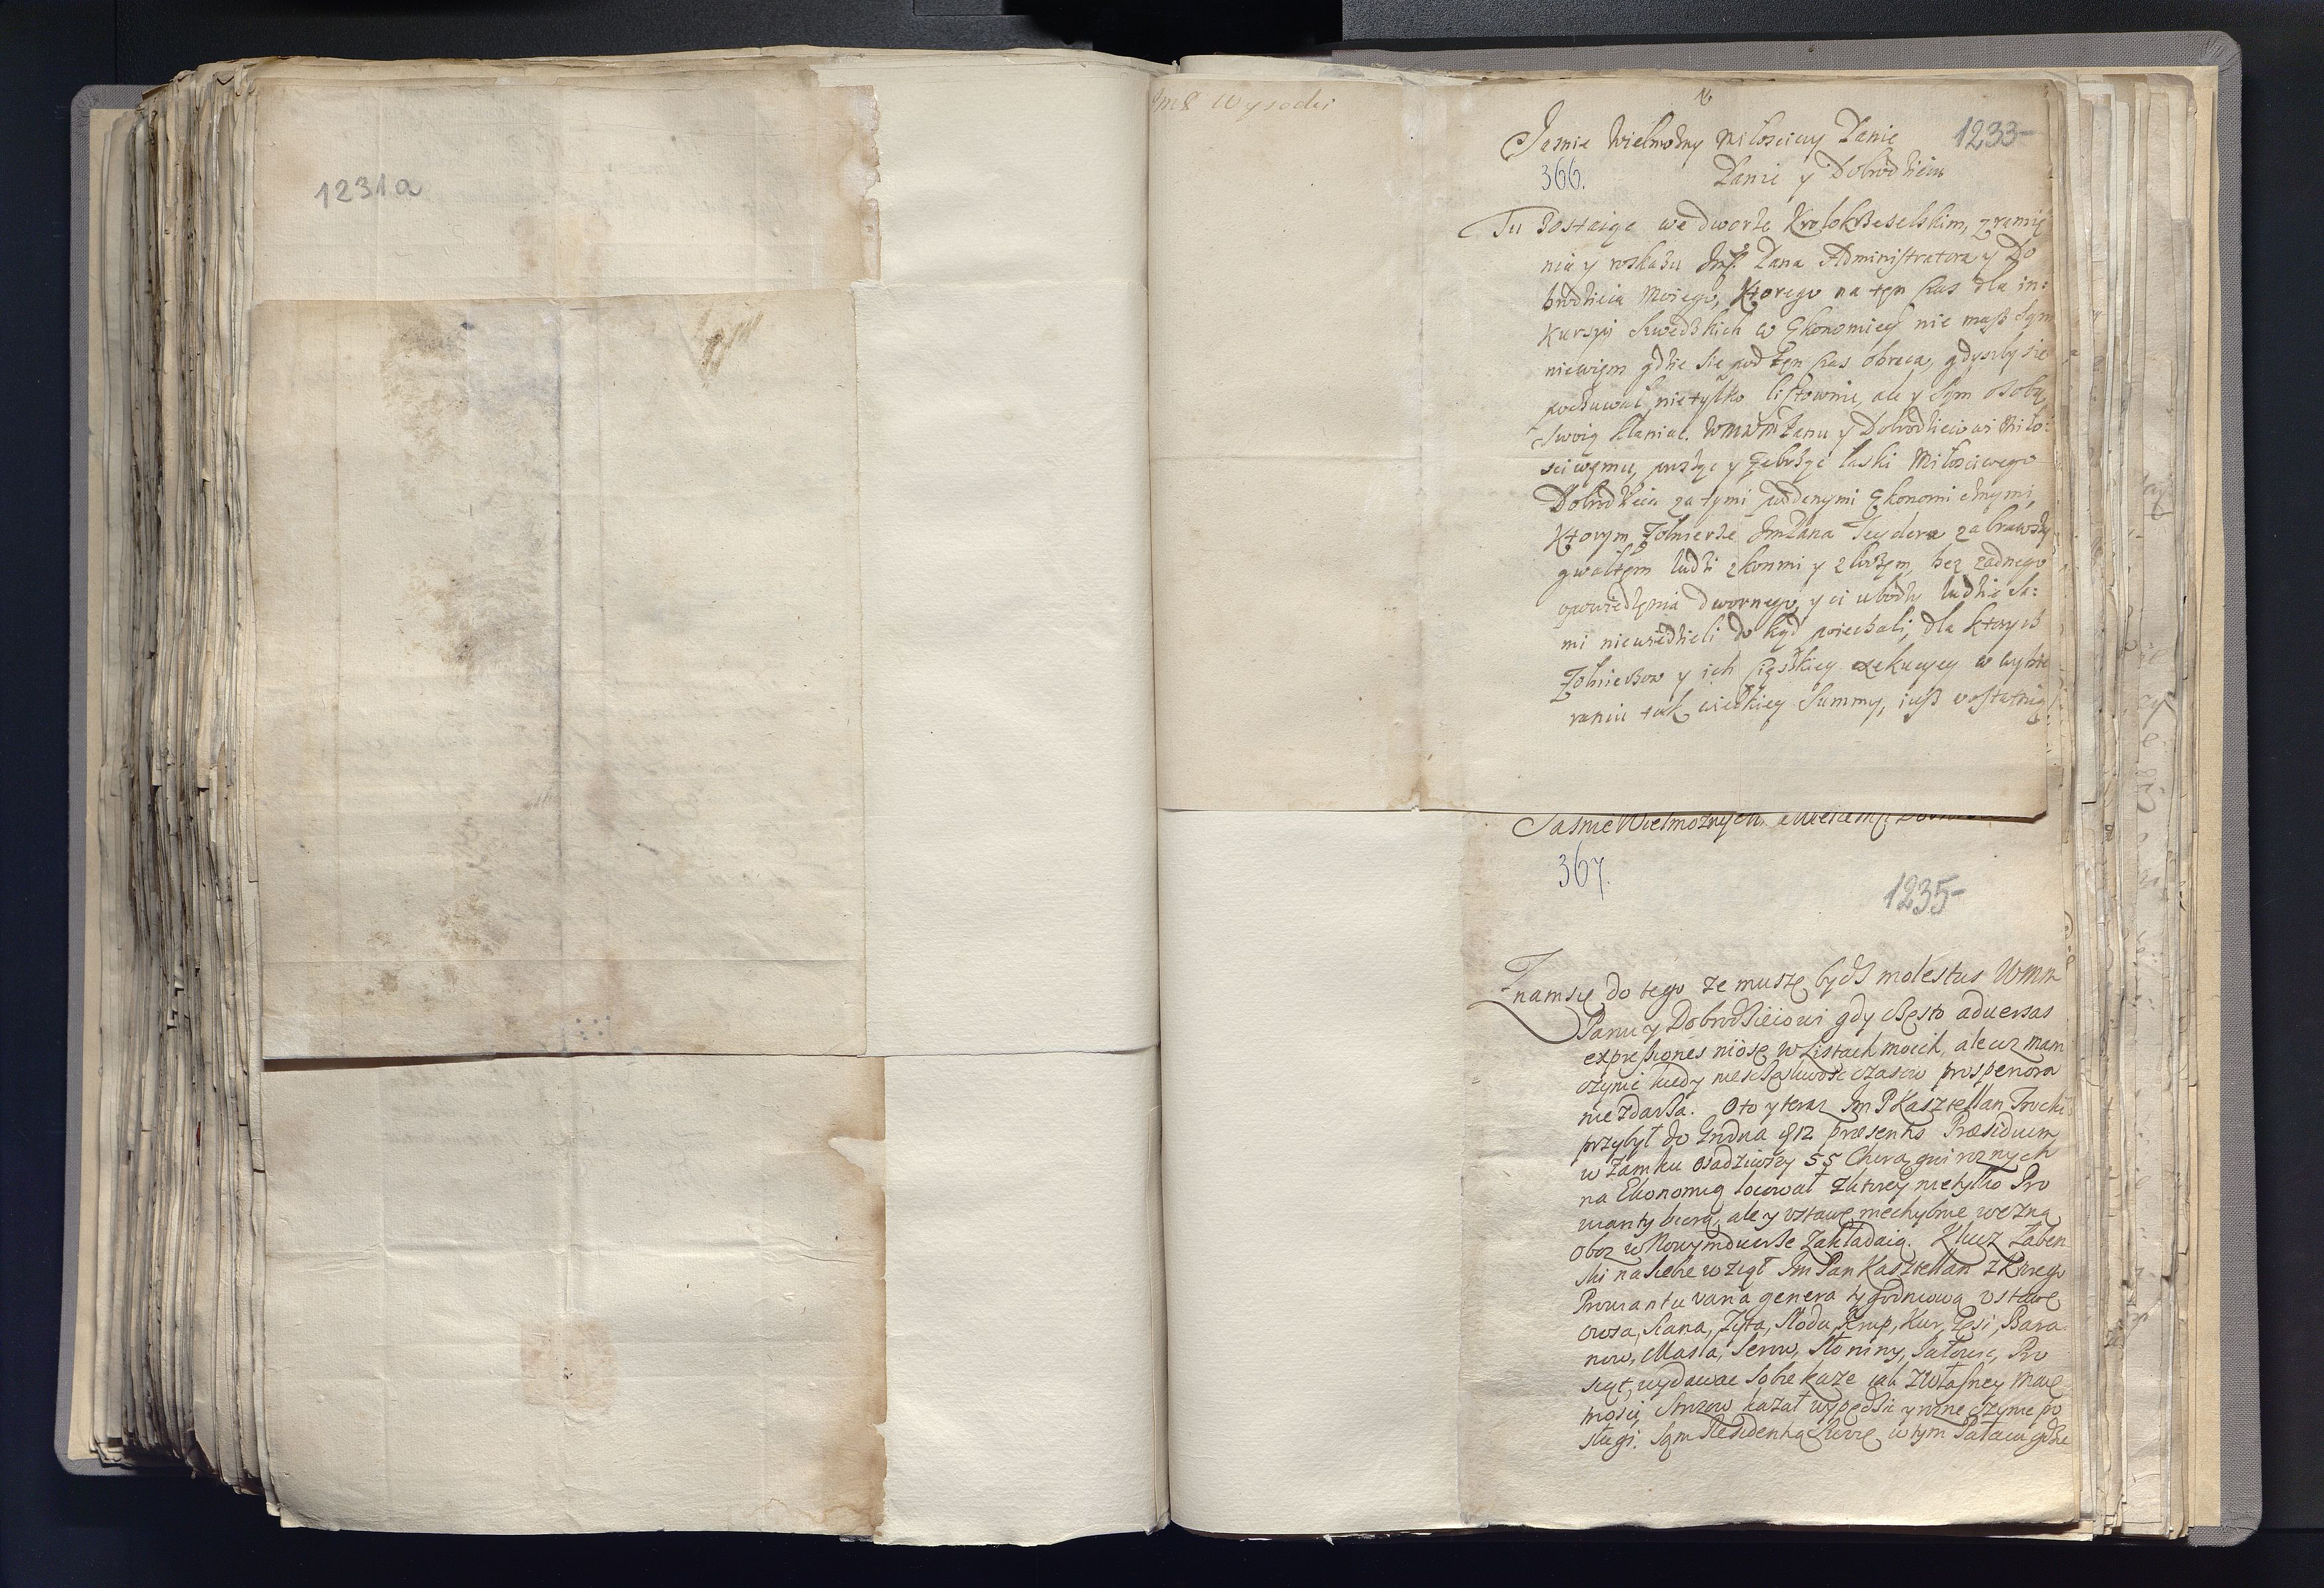 1231a
Wysocki
Jasnie Wielmozny Miłosciwy Panie
1233
366.
Panie y Dobrodzieiu
Tu zostaiąc we dworze Krolokrzeselskim, z ramię
nia y roskazu Jmsc Pana Administratora y Do
brodzieia Moiego, Ktorego na ten czas dla in:
kursyi Szwedzkich w Ekonomiey nie masz
niewiem gdzie sie pod ten czas obraca, gdyszby sie
nietylko listownie, ale y sam osobą
swoią kłaniał. WMWM Panu y Dobrodzieiowi Miło:
sciwemu, prosząc y żebrząc łaski Miłosciwego
Dobrodzieia za tymi poddanymi Ekonomicznymi,
Ktorym Zołnierze JmPana zabrawszy
gwałtem ludzi z konmi y z , bez żadnego
opowiedzenia dwornego, y ci ubodzy ludzie sa:
mi niewiedzieli do kąd poiechali, dla ktorych
Zołnierzow y ich cięszkiey exekucyey w wybie
raniu tak wielkiey Summy, iusz ostatnią
Jasnie Wielmozny
367.
1235
Znam się do tego ze muszę bydz molestus WMM
Panu y Dobrodzieiowi gdy często aduersas
expressiones niosę w Listach moich, ale cuz mam
czynic kiedy niesczęsliwosc czasow prosperiora
nie zdarza. Oto y teraz Jm P Kasztellan Trocki
przybył do Grodna 12 praesentis Praesidium
w Zamku osadziwszy 55 Chorągwi roznych
na Ekonomię locował z ktorey nietylko Pro
wianty biorą, ale y ustawę niechybnie wezną
oboz w Nowymdworze zakładaią. Klucz Łaben
ski na siebie wziął Jm Pan Kasztellan z Ktorego
Prowiantu varia genera tygodniową ustawę
owsa, siana, Zyta, słodu, Krup, Kur, Gęsi, Bara
now, Masła, serow, słoniny, Jałowic, Pro
siąt, wydawac sobie kaze iak z własney maię
tnosci, Strozow kazał wypędzic y rozne czynic po
sługi. Sam Residentią swoię w tym Pałacu gdzie